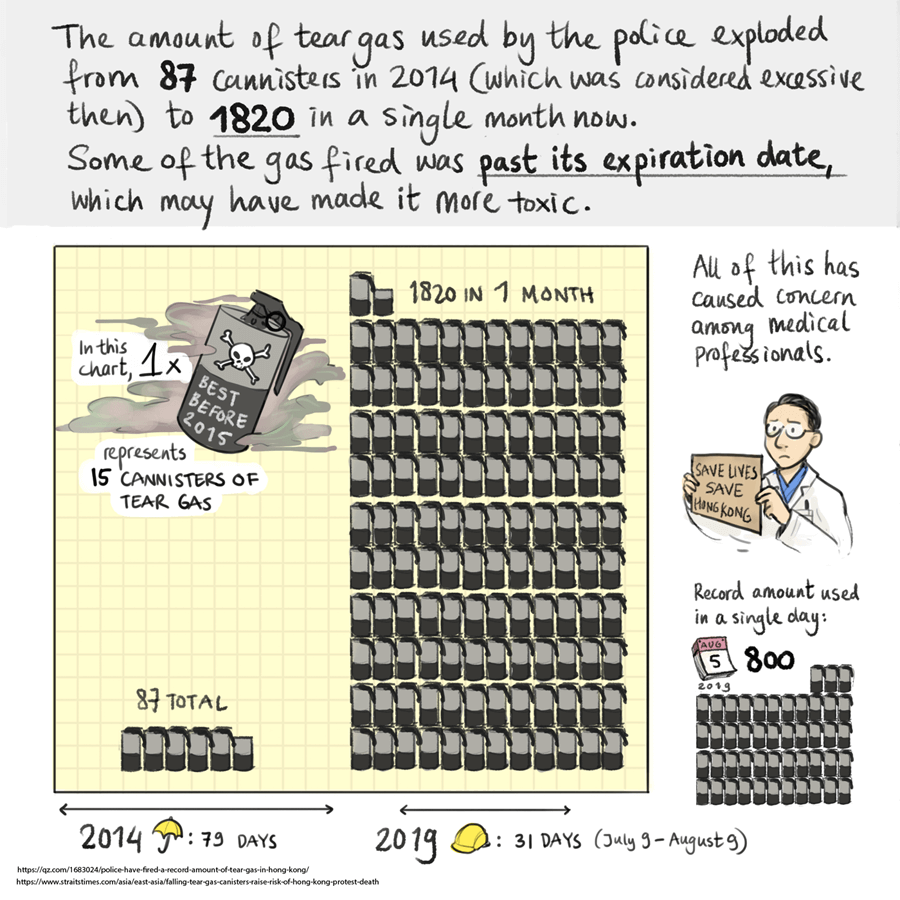 The amount of tear gas used by the police exploded
from 87 cannisters in 2014 (which was considered excessive
then) to 1820 in a single month now.
Some of the gas fired was past its expiration date,
which may have made it more toxic.
1820 IN 1 MONTH
In this
chart, 1x
BEST
BEFORE
2015
represents
15 CANNISTERS OF
TEAR GAS
87 TOTAL
All of this has
caused concern
among medical
professionals.
SAVE LIVES
SAVE
HONG KONG
Record amount used
in a single day:
AUG
5
2019
800
2014 : 79 DAYS
2019 : 31 DAYS (July 9 - August 9)
https://qz.com/1683024/police-have-fired-a-record-amount-of-tear-gas-in-hong-kong/
https://www.straitstimes.com/asia/east-asia/falling-tear-gas-canisters-raise-risk-of-hong-kong-protest-death